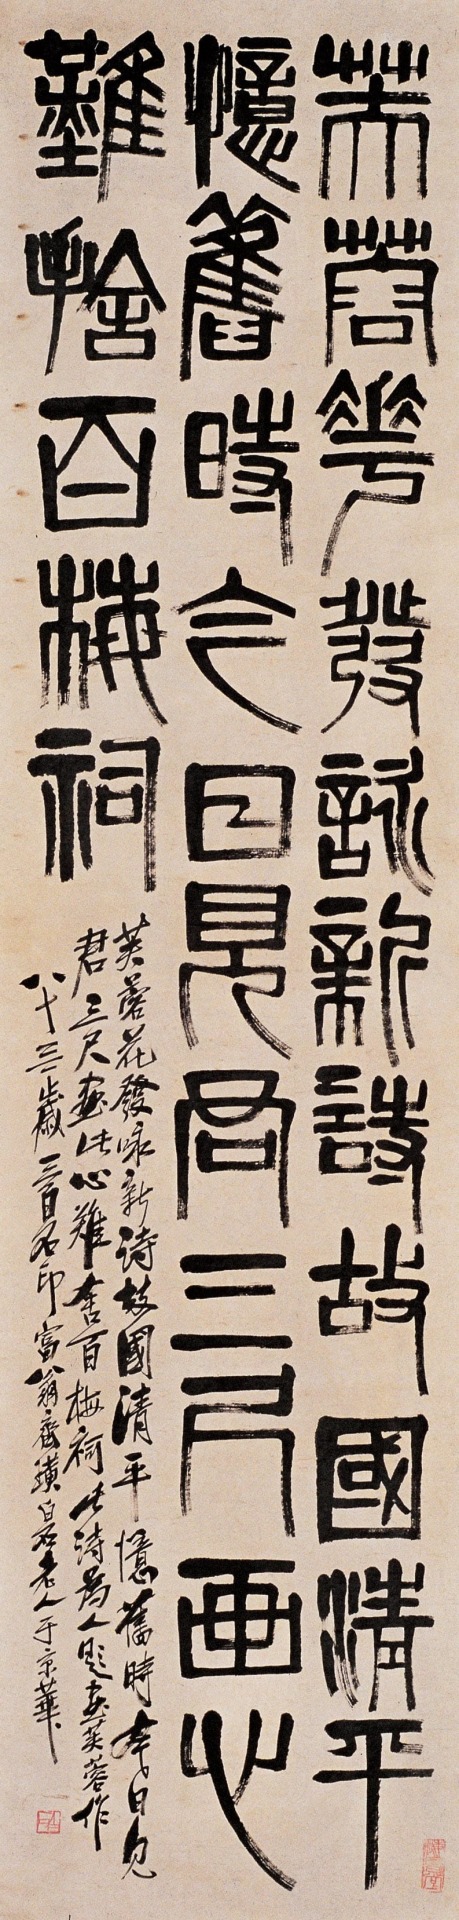 芙蓉華發詠新詩故國清平
憶舊時今日見君三尺畫心
難捨百梅祠
芙蓉花發咏新詩故國清平憶舊時今日見
君三尺畫此心難舍百梅祠此詩為人題畫芙蓉作
八十三歲三百石印富翁齊璜白石老人于京華